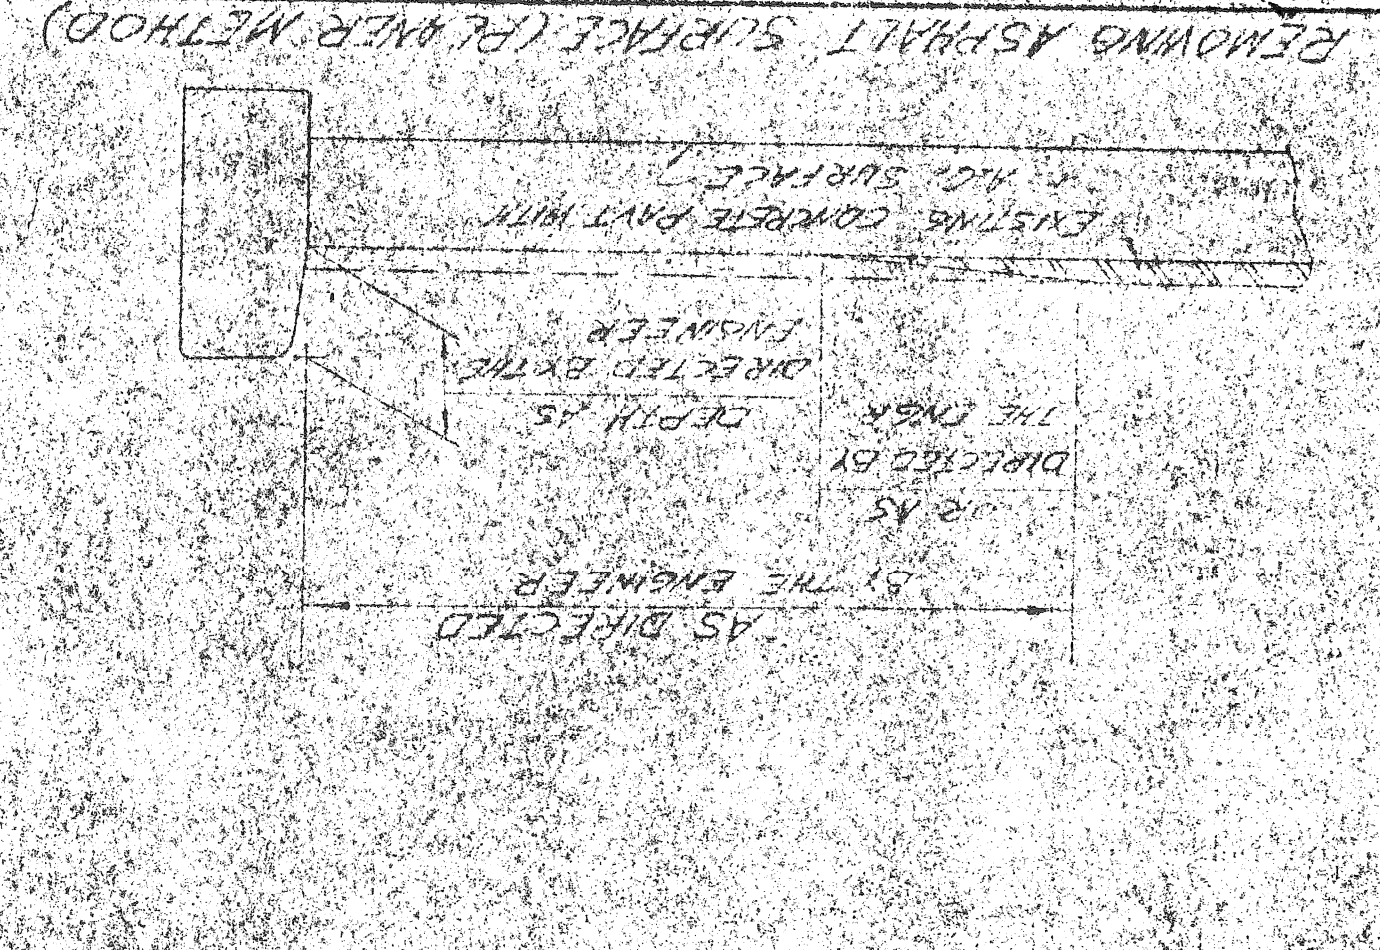 AS DIRECTED
BY THE ENGINEER
OR AS
DIRECTED BY
THE ENGR
DEPTH AS
DIRECTED BY THE
ENGINEER
EXISTING CONCRETE PAV'T WITH
A.C. SURFACE
REMOVING ASPHALT SURFACE (PLANER METHOD)